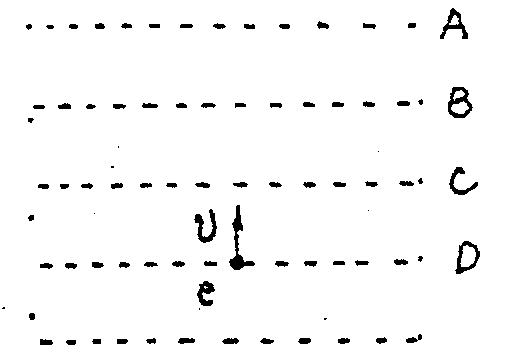 A
B
C
U
D
e